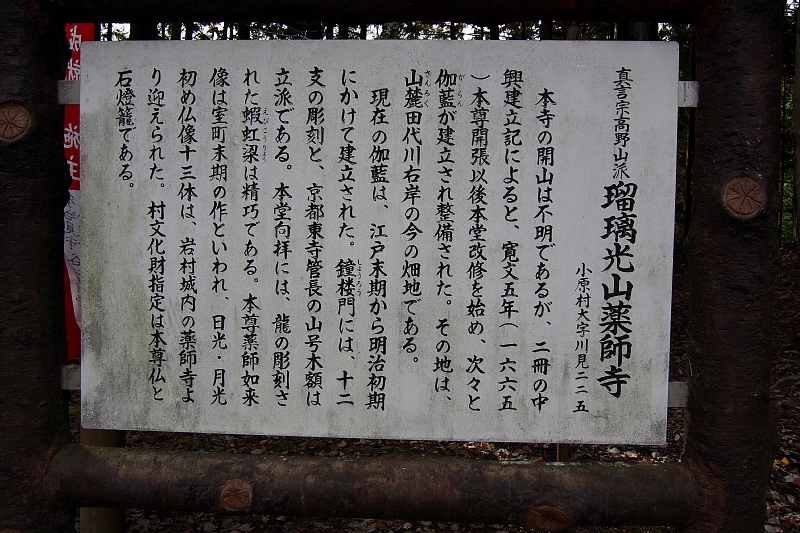 真言宗高野山派 瑠璃光山薬師寺
小原村大字川見二二五
本寺の開山は不明であるが、二冊の中
興建立記によると、寛文五年(一六六五
)本尊開張以後本堂改修を始め、次々と
伽藍が建立され整備された。その地は、
がらん
山麓田代川右岸の今の畑地である。
さんろく
現在の伽藍は、江戸末期から明治初期
にかけて建立された。鐘楼門には、十二
しょうろう
支の彫刻と、京都東寺管長の山号木額は
立派である。本堂向拝には、龍の彫刻さ
れた蝦虹梁は精巧である。本尊薬師如来
えびこうりょう
像は室町末期の作といわれ、日光・月光
初め仏像十三体は、岩村城内の薬師寺よ
り迎えられた。村文化財指定は本尊仏と
石燈籠である。
成就
施主